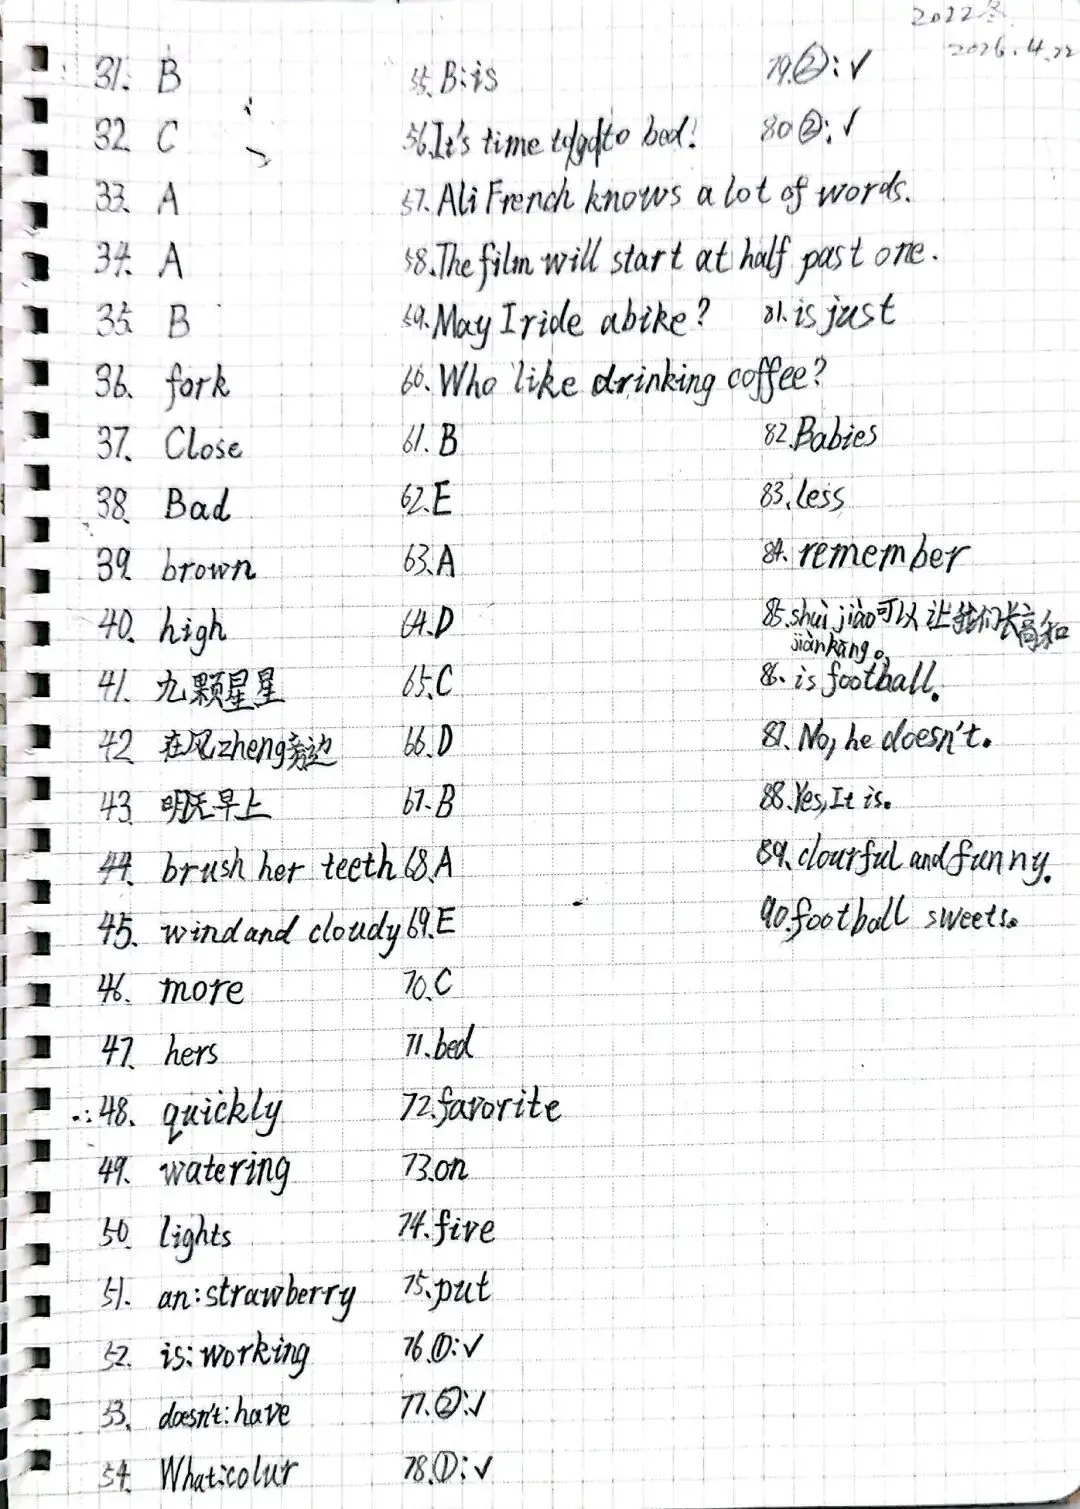 2022冬
2026.4.22
31. B
32. C
33. A
34. A
35. B
36. fork
37. Close
38. Bad
39. brown
40. high
41. 九颗星星
42. 在风zheng旁边
43. 明天早上
44. brush her teeth
45. wind and cloudy
46. more
47. hers
48. quickly
49. watering
50. lights
51. an:strawberry
52. is:working
53. doesn't:have
54. What:colur
55. B:is
56. It's time to go to bed!
57. Ali French knows a lot of words.
58. The film will start at half past one.
59. May I ride a bike?
60. Who like drinking coffee?
61. B
62. E
63. A
64. D
65. C
66. D
67. B
68. A
69. E
70. C
71. bed
72. favorite
73. on
74. five
75. put
76. ①:✓
77. ②:✓
78. ①:✓
79. ②:✓
80 ②:✓
81. is just
82. Babies
83. less
84. remember
85. shuì jiào可以让我们长高和
jiànkāng。
86. is football.
87. No, he doesn't.
88. Yes, It is.
89. clourful and funny.
90. football sweets.